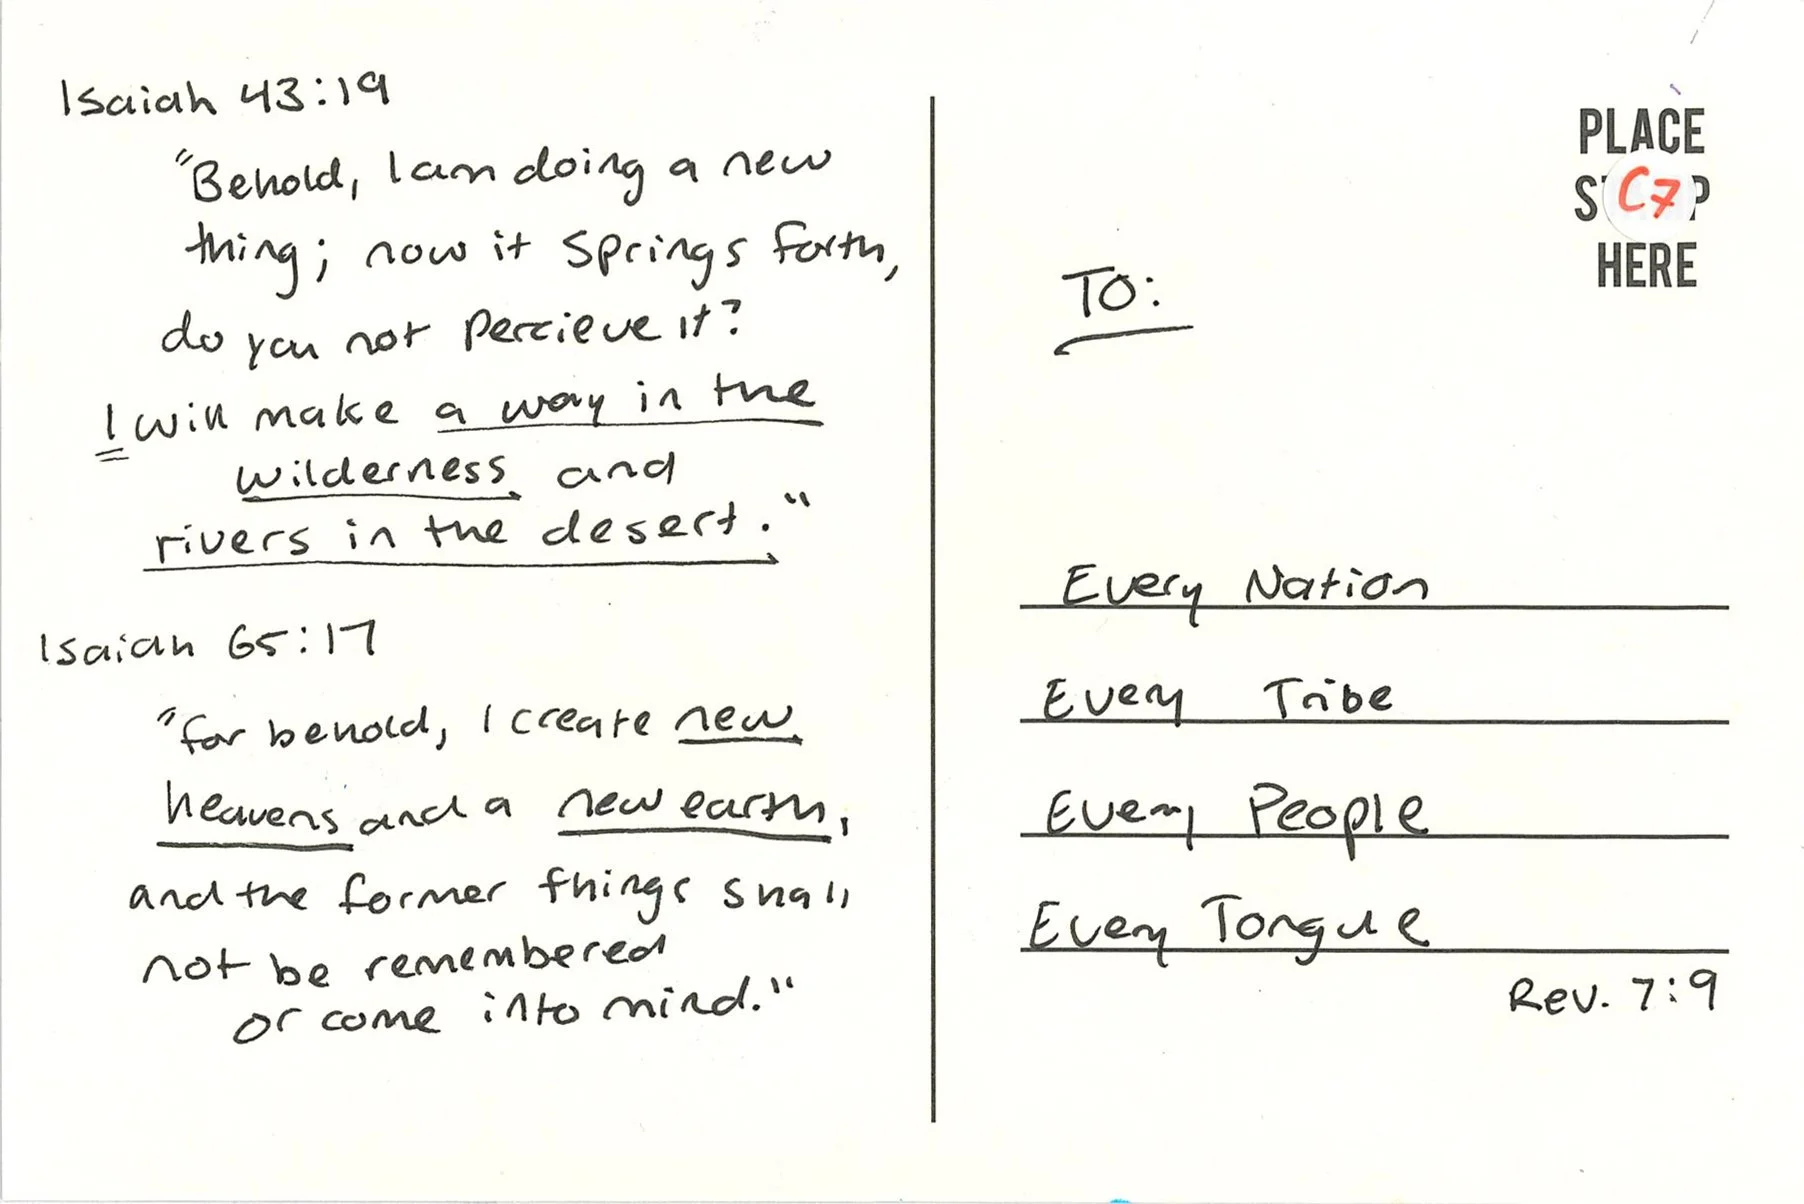 Isaiah 43:19
"Behold, I am doing a new
thing; now it springs forth,
do you not percieve it?
I will make a way in the
wilderness and
rivers in the desert."
Isaiah 65:17
"for behold, I create new
heavens and a new earth,
and the former things shall
not be remembered
or come into mind."
PLACE
C7
HERE
TO:
Every Nation
Every Tribe
Every People
Every Tongue
Rev. 7:9